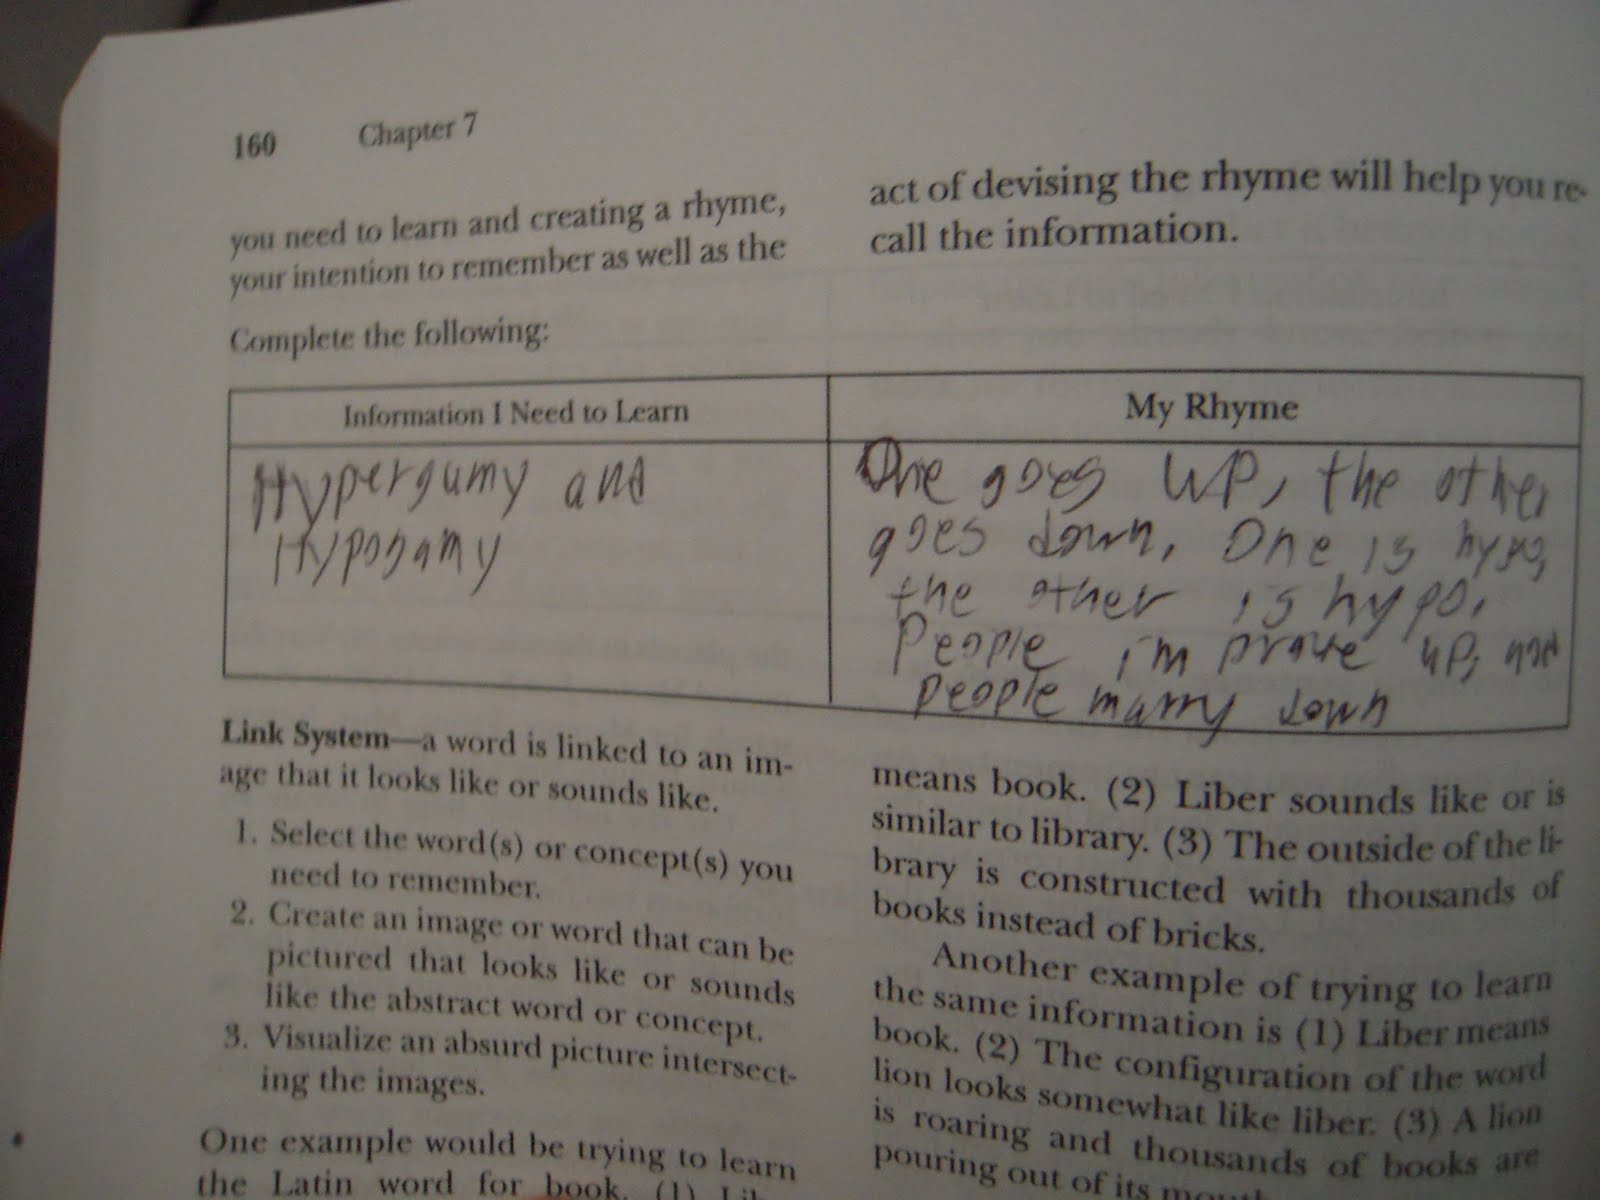 160 Chapter 7
you need to learn and creating a rhyme,
your intention to remember as well as the
act of devising the rhyme will help you re-
call the information.
Complete the following:
Information I Need to Learn
My Rhyme
Hypergumy and
Hypogamy
One goes up, the other
goes down, One is hypo,
the other is hypo.
People improve up, and
people marry down
Link System—a word is linked to an im-
age that it looks like or sounds like.
1. Select the word(s) or concept(s) you
need to remember.
2. Create an image or word that can be
pictured that looks like or sounds
like the abstract word or concept.
3. Visualize an absurd picture intersect-
ing the images.
One example would be trying to learn
the Latin word for book. (1)
means book. (2) Liber sounds like or is
similar to library. (3) The outside of the li-
brary is constructed with thousands of
books instead of bricks.
Another example of trying to learn
the same information is (1) Liber means
book. (2) The configuration of the word
lion looks somewhat like liber. (3) A lion
is roaring and thousands of books are
pouring out of its